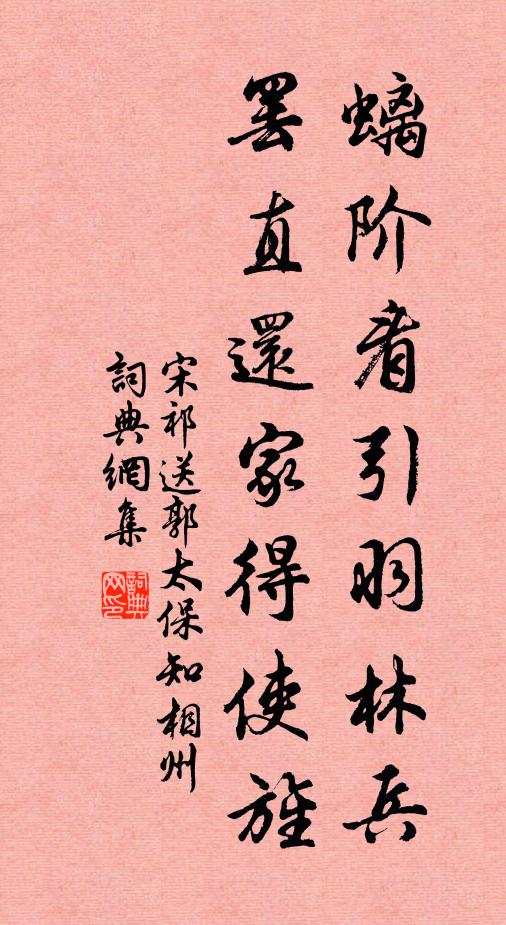 螭阶看引羽林兵
罢直還家得使旌
宋祁送郭太保知相州
詞典網集
詞典网印